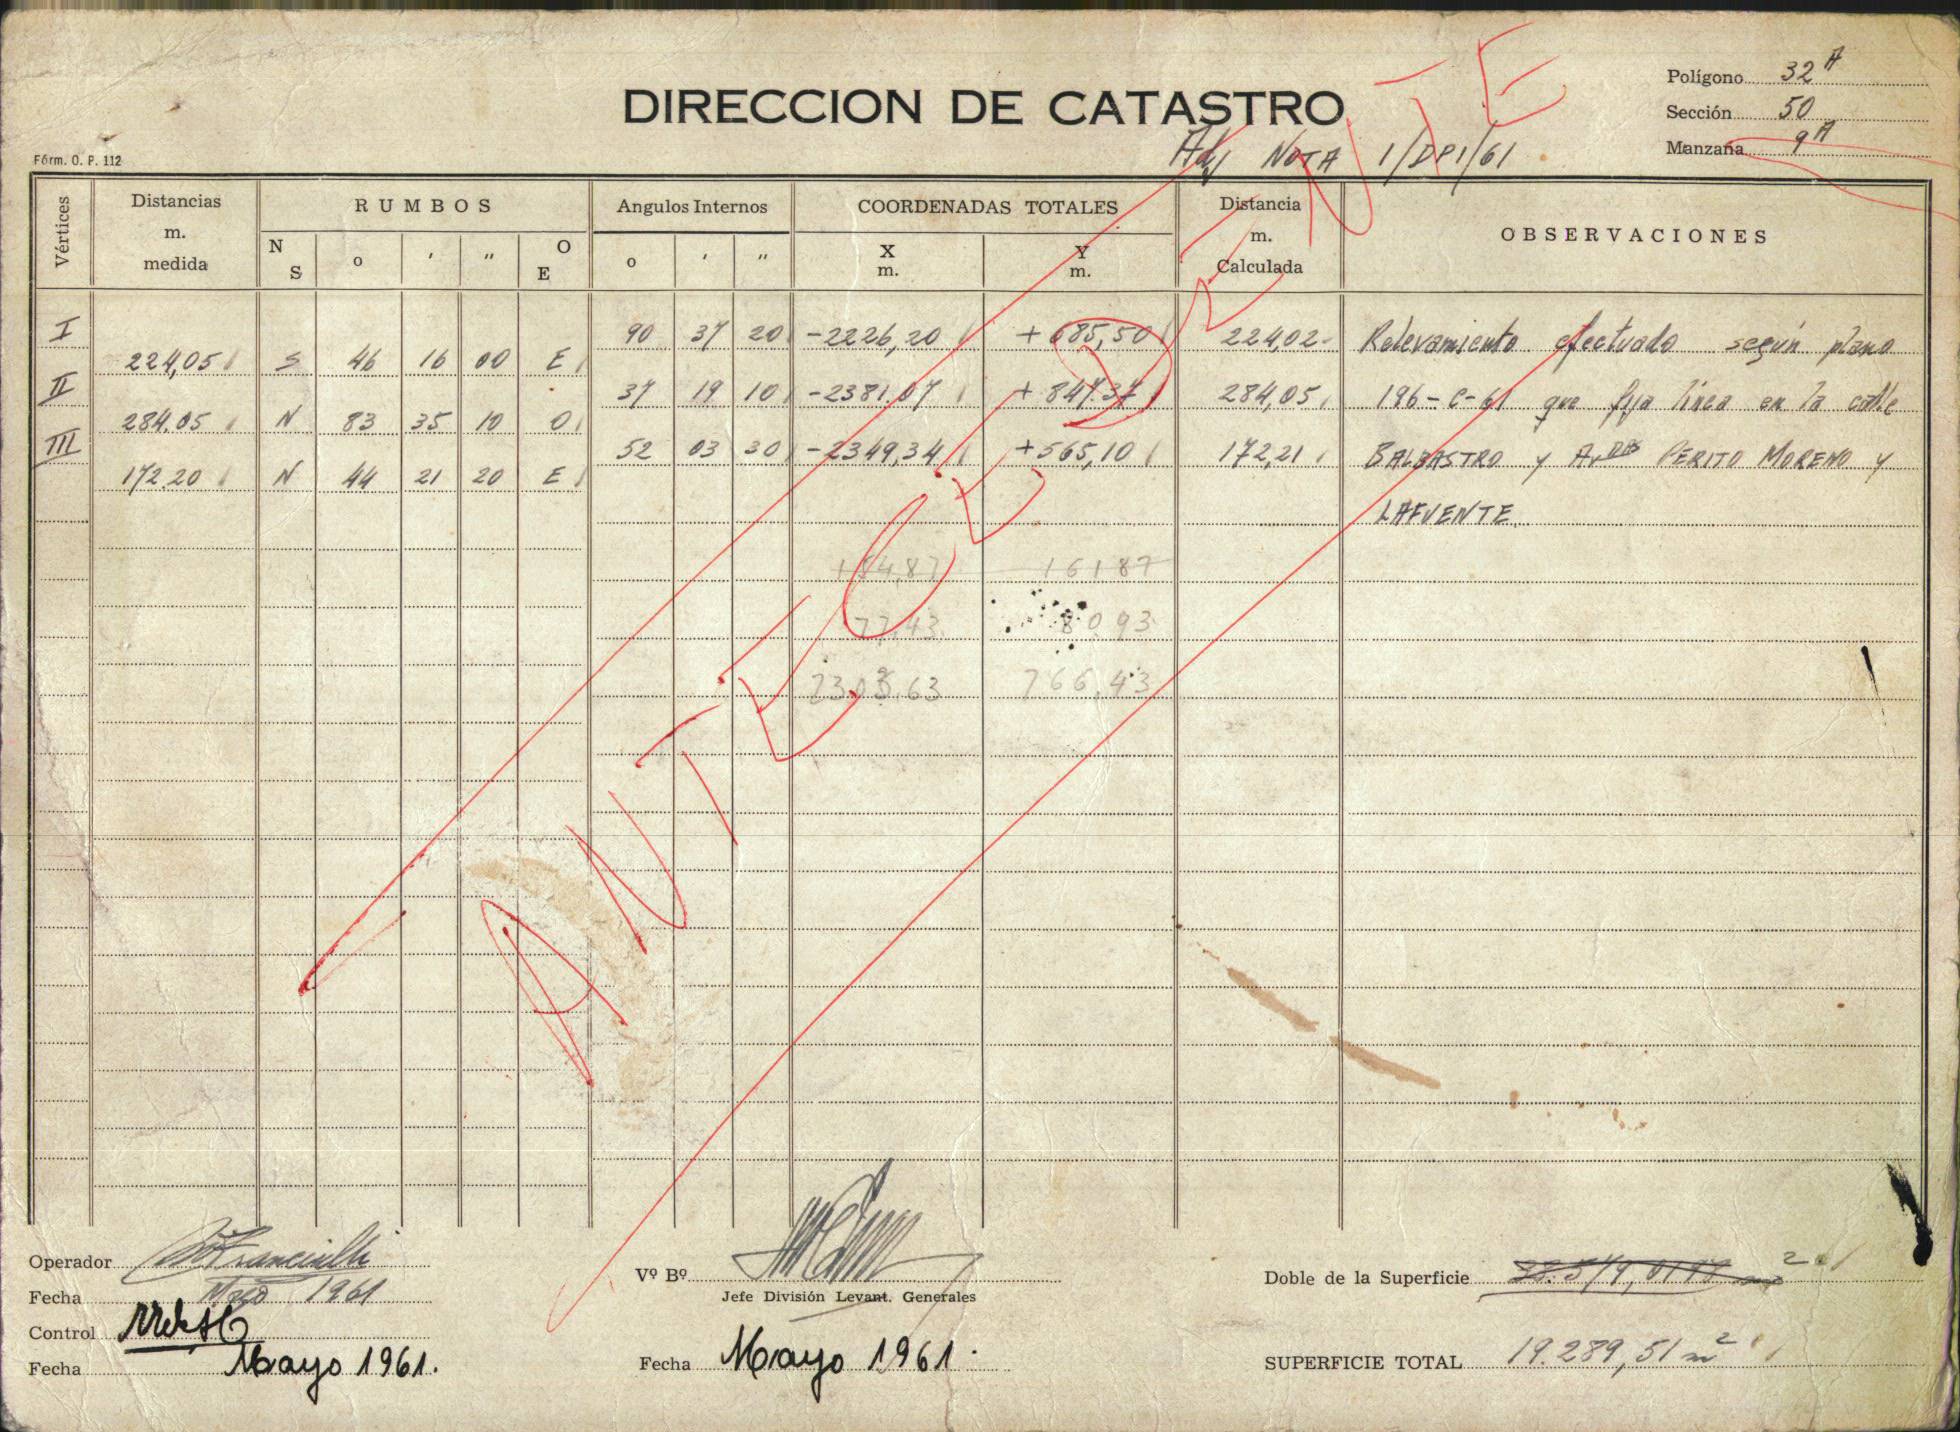 Polígono 32 A
DIRECCION DE CATASTRO
Sección 50
Adj NOTA 1/DPI/61
Manzana 9 A
Fórm. O. P. 112
Vértices
Distancias m. medida
RUMBOS
N S
o
'
"
O E
Angulos Internos
o
'
"
COORDENADAS TOTALES
X m.
Y m.
Distancia m. Calculada
OBSERVACIONES
I 90 37 20 -2226,20 + 685,50 224,02 Relevamiento efectuado según plano
224,05 S 46 16 00 E
II 37 19 10 -2381.07 + 847.37 284,05 196-C-61 que fija línea en la calle
284.05 N 83 35 10 O
III 52 03 30 -2349,34 +565,10 172,21 BALBASTRO y Av.das PERITO MORENO y
172.20 N 44 21 20 E
LAFUENTE.
154,87 161 87
77,43 80 93
766,43
ANTECEDENTE
Operador
Fecha 1961
Control
Fecha Mayo 1961.
Vº Bº
Jefe División Levant. Generales
Fecha Mayo 1961.
Doble de la Superficie
SUPERFICIE TOTAL 19.289,51 m2